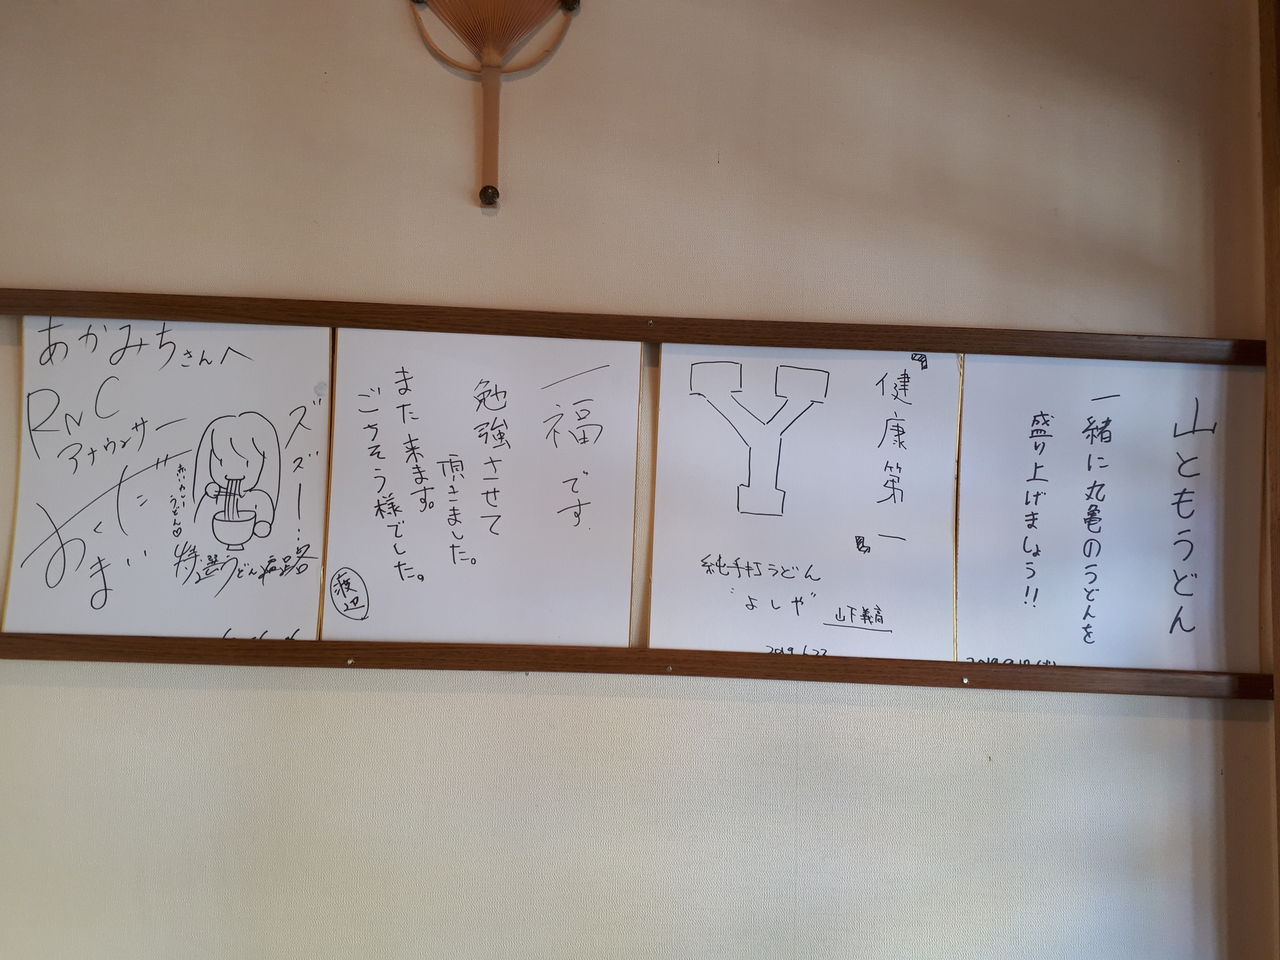 あかみちさんへ
RNC
アナウンサー
おくだ
ズズー…
うどん♡
特選うどん遍路
一福です
勉強させて
頂きました。
また来ます。
ごちそう様でした。
渡辺
健康第一
Y
純手打うどん
"よしや"
山下義高
2019.6.22
山ともうどん
一緒に丸亀のうどんを
盛り上げましょう!!